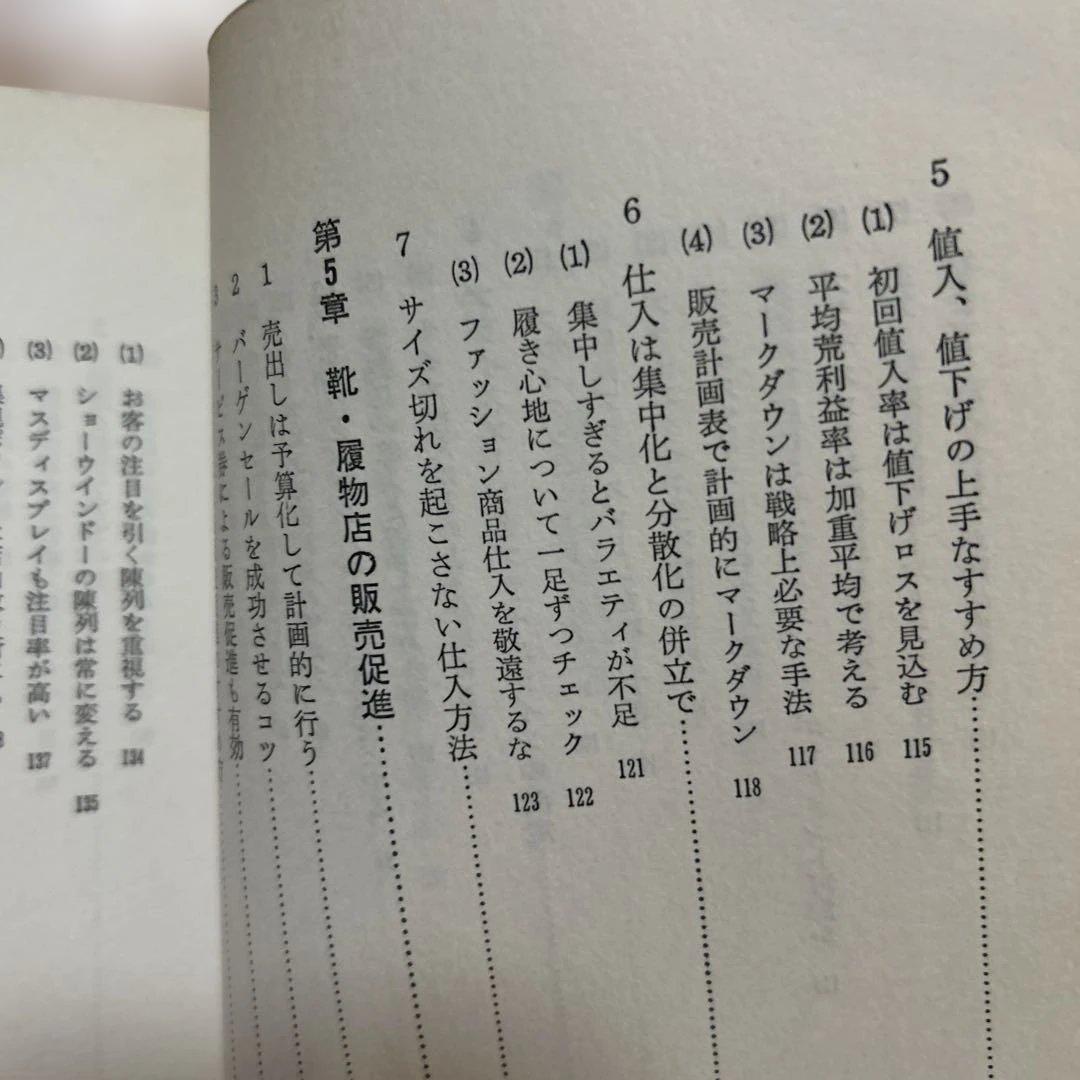 5 値入、値下げの上手なすすめ方
(1) 初回値入率は値下げロスを見込む 115
(2) 平均荒利益率は加重平均で考える 116
(3) マークダウンは戦略上必要な手法 117
(4) 販売計画表で計画的にマークダウン 118
6 仕入は集中化と分散化の併立で
(1) 集中しすぎるとバラエティが不足 121
(2) 履き心地について一足ずつチェック 122
(3) ファッション商品仕入を敬遠するな 123
7 サイズ切れを起こさない仕入方法
第5章 靴・履物店の販売促進
1 売出しは予算化して計画的に行う
2 バーゲンセールを成功させるコツ
3 サービス券による販売促進も有効
(1) お客の注目を引く陳列を重視する 134
(2) ショーウインドーの陳列は常に変える 135
(3) マスディスプレイも注目率が高い 137